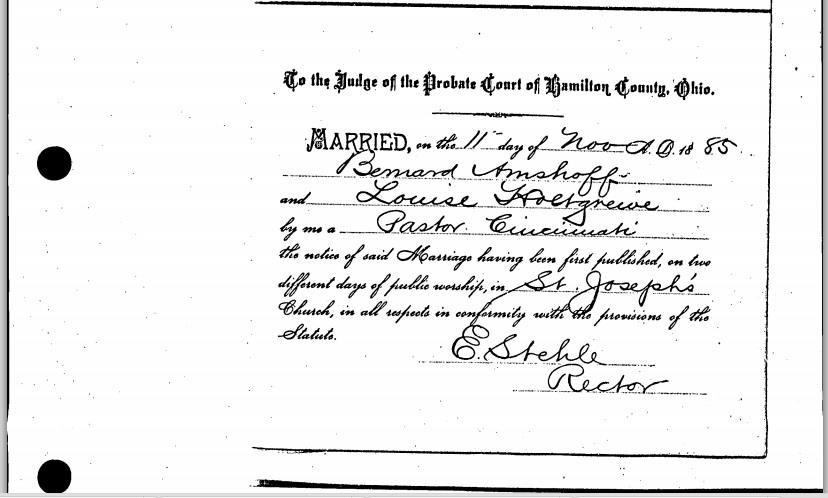 To the Judge of the Probate Court of Hamilton County, Ohio.
MARRIED, on the 11 day of Nov A.D. 1885
Bernard Amshoff
and Louise Holtgreive
by me a Pastor. Cincinnati
the notice of said Marriage having been first published, on two
different days of public worship, in St. Joseph's
Church, in all respects in conformity with the provisions of the
Statute.
E. Stehle
Rector